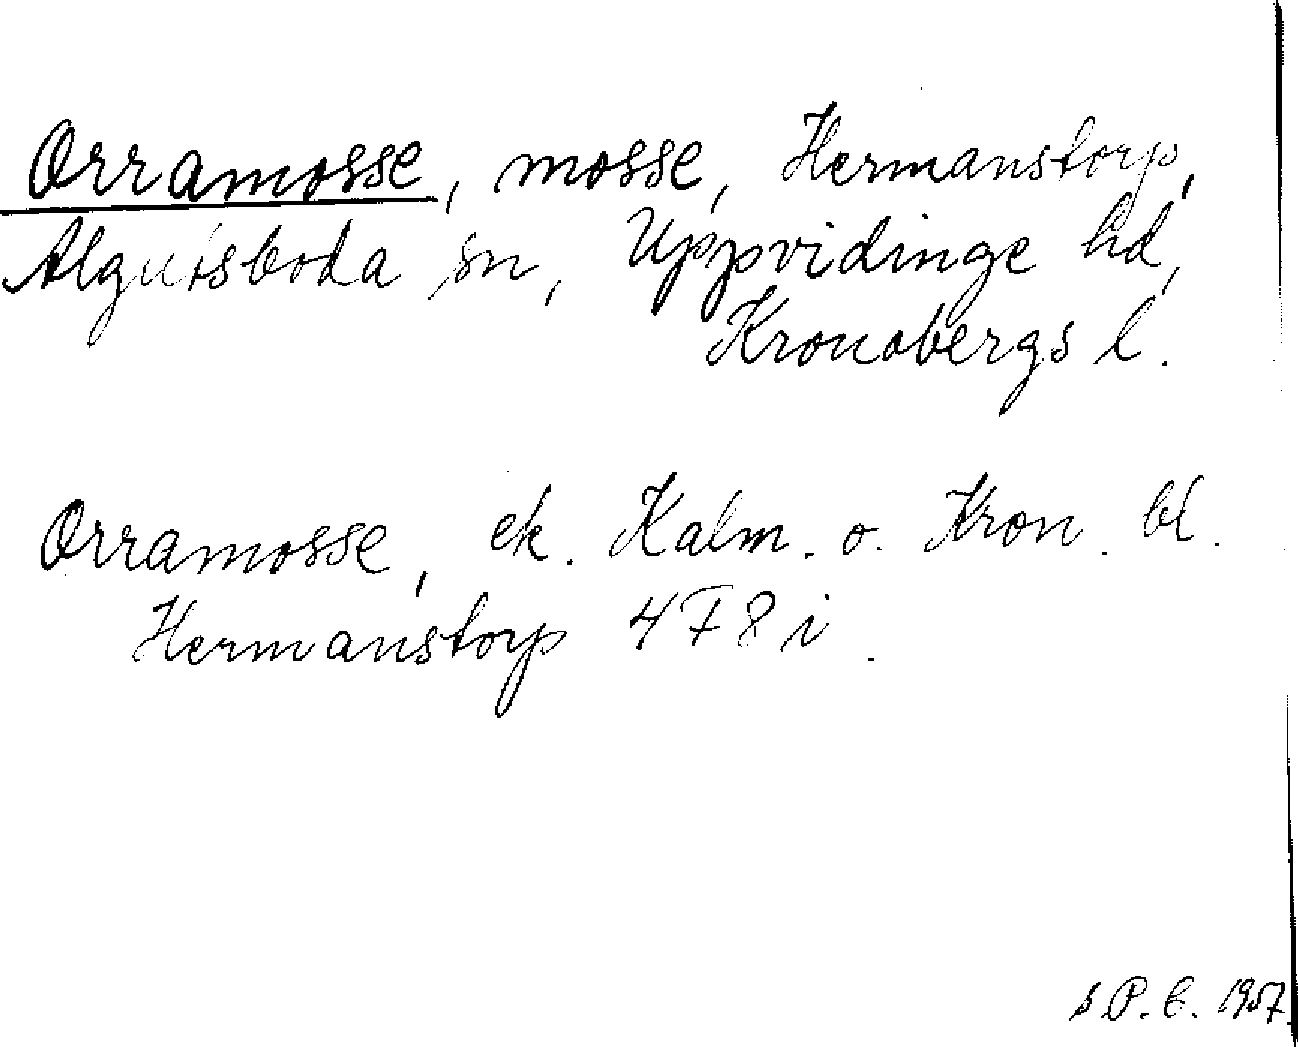 Orramosse, mosse, Hermanstorp,
Algutsboda sn, Uppvidinge hd,
Kronobergs l.
Orramosse, ek. Kalm. o. Kron. bl.
Hermanstorp 4F8i.
S.P.C. 1957.